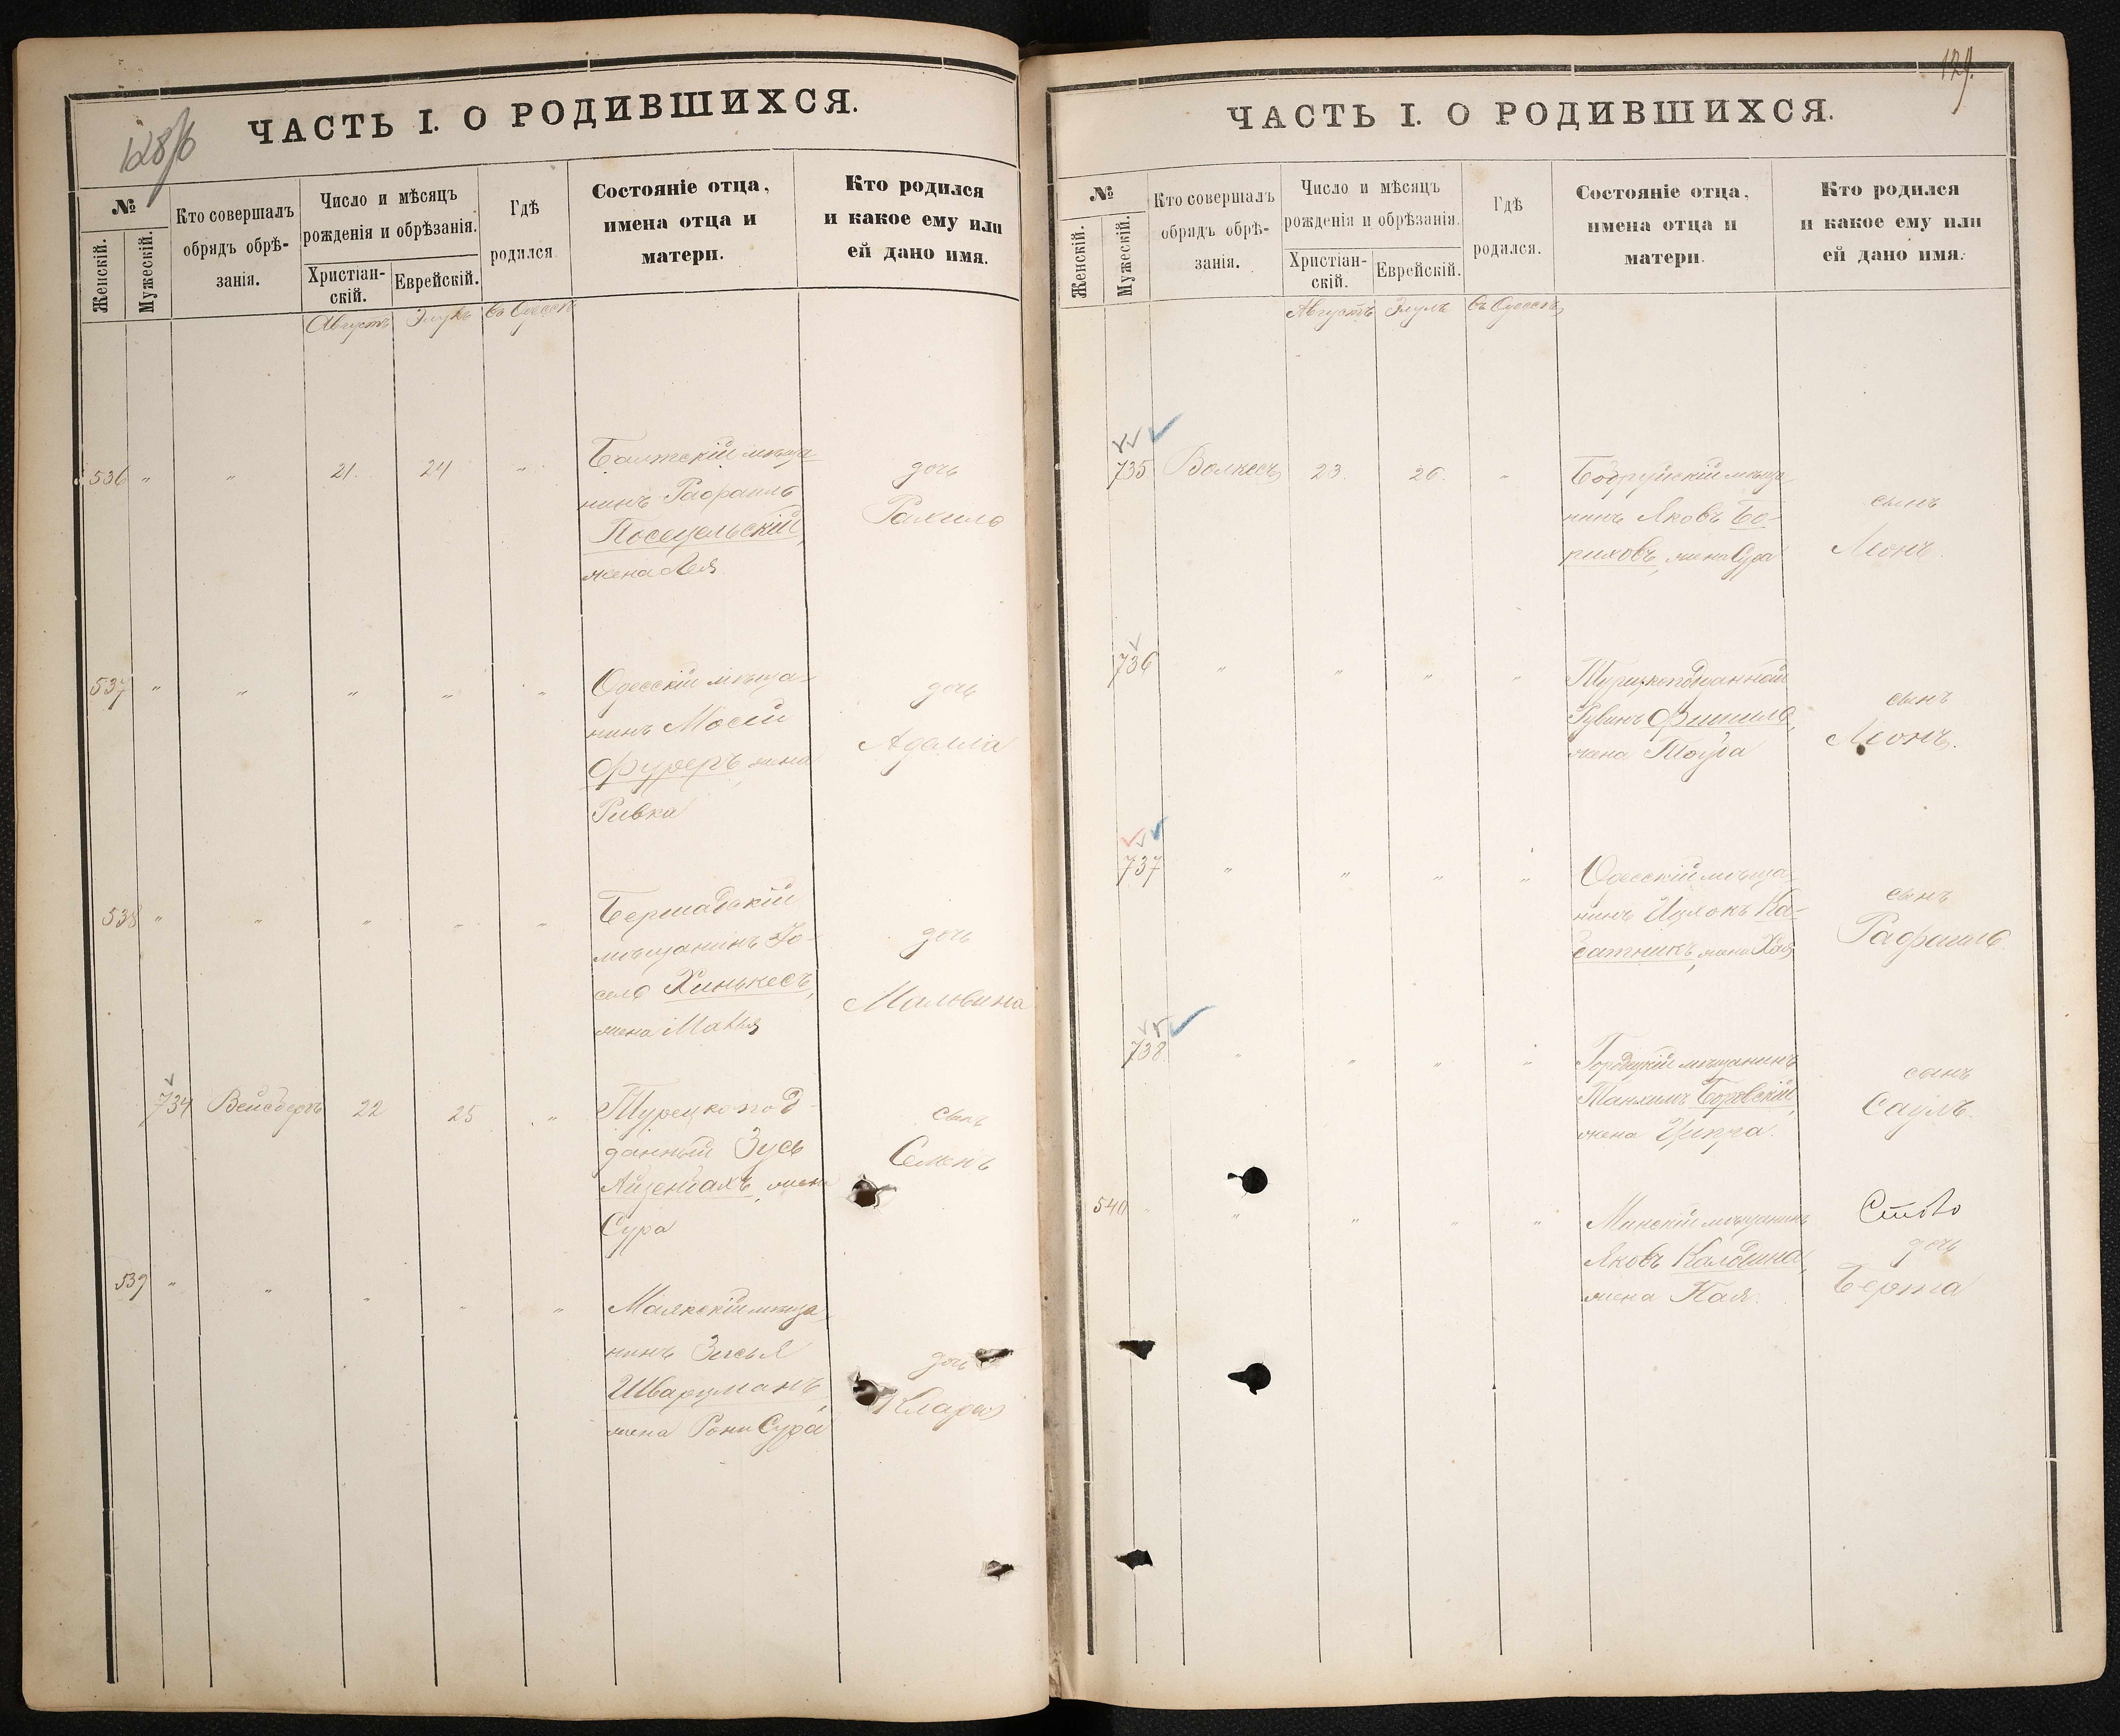 128/6
ЧАСТЬ I. О РОДИВШИХСЯ.
№
Женскій.
Мужескій.
Кто совершалъ
обрядъ обрѣ-
занія.
Число и мѣсяцъ
рожденія и обрѣзанія.
Христіан-
скій.
Еврейскій.
Гдѣ
родился
Состояніе отца,
имена отца и
матери.
Кто родился
и какое ему или
ей дано имя.
Августъ Элулъ въ Одессѣ
536 " " 21. 24 "
Балтскій мѣща-
нинъ Рафаилъ
Посецельскій,
жена Лея
дочь
Рахиль
537 " " " " "
Одесскій мѣща-
нинъ Мосей
Фуреръ, жена
Ривка
дочь
Аделла
538 " " " " "
Бершадскій
мѣщанинъ Іо-
сель Хинькесъ,
жена Матля
дочь
Мальвина
734 Вейсбергъ 22 25 "
Турецкопод-
данный Зусь
Айзенгахъ, жена
Сура
сынъ
Семенъ
539 " " " " "
Маякскій мѣща-
нинъ Зисья
Шварцманъ,
жена Рони Сура
дочь
Клара
129.
ЧАСТЬ I. О РОДИВШИХСЯ.
№
Женскій.
Мужескій.
Кто совершалъ
обрядъ обрѣ-
занія.
Число и мѣсяцъ
рожденія и обрѣзанія.
Христіан-
скій.
Еврейскій.
Гдѣ
родился.
Состояніе отца,
имена отца и
матери.
Кто родился
и какое ему или
ей дано имя.
Августъ Элулъ въ Одессѣ
735 Волкесъ 23. 26. "
Бобруйскій мѣща-
нинъ Яковъ Бо-
риховъ, жена Сура
сынъ
Леонъ.
736 " " " "
Турецкоподданный
Рувинъ Фишилъ,
жена Тойба
сынъ
Леонъ.
737 " " " "
Одесскій мѣща-
нинъ Ицхокъ Ка-
батникъ, жена Хая
сынъ
Рафаилъ.
738 " " " "
мѣщанинъ
Танхимъ Боровскій,
жена Ципра.
сынъ
Саулъ.
540 " " " " "
Минскій мѣщанинъ
Яковъ Калбина,
жена Хая.
дочь
Берта